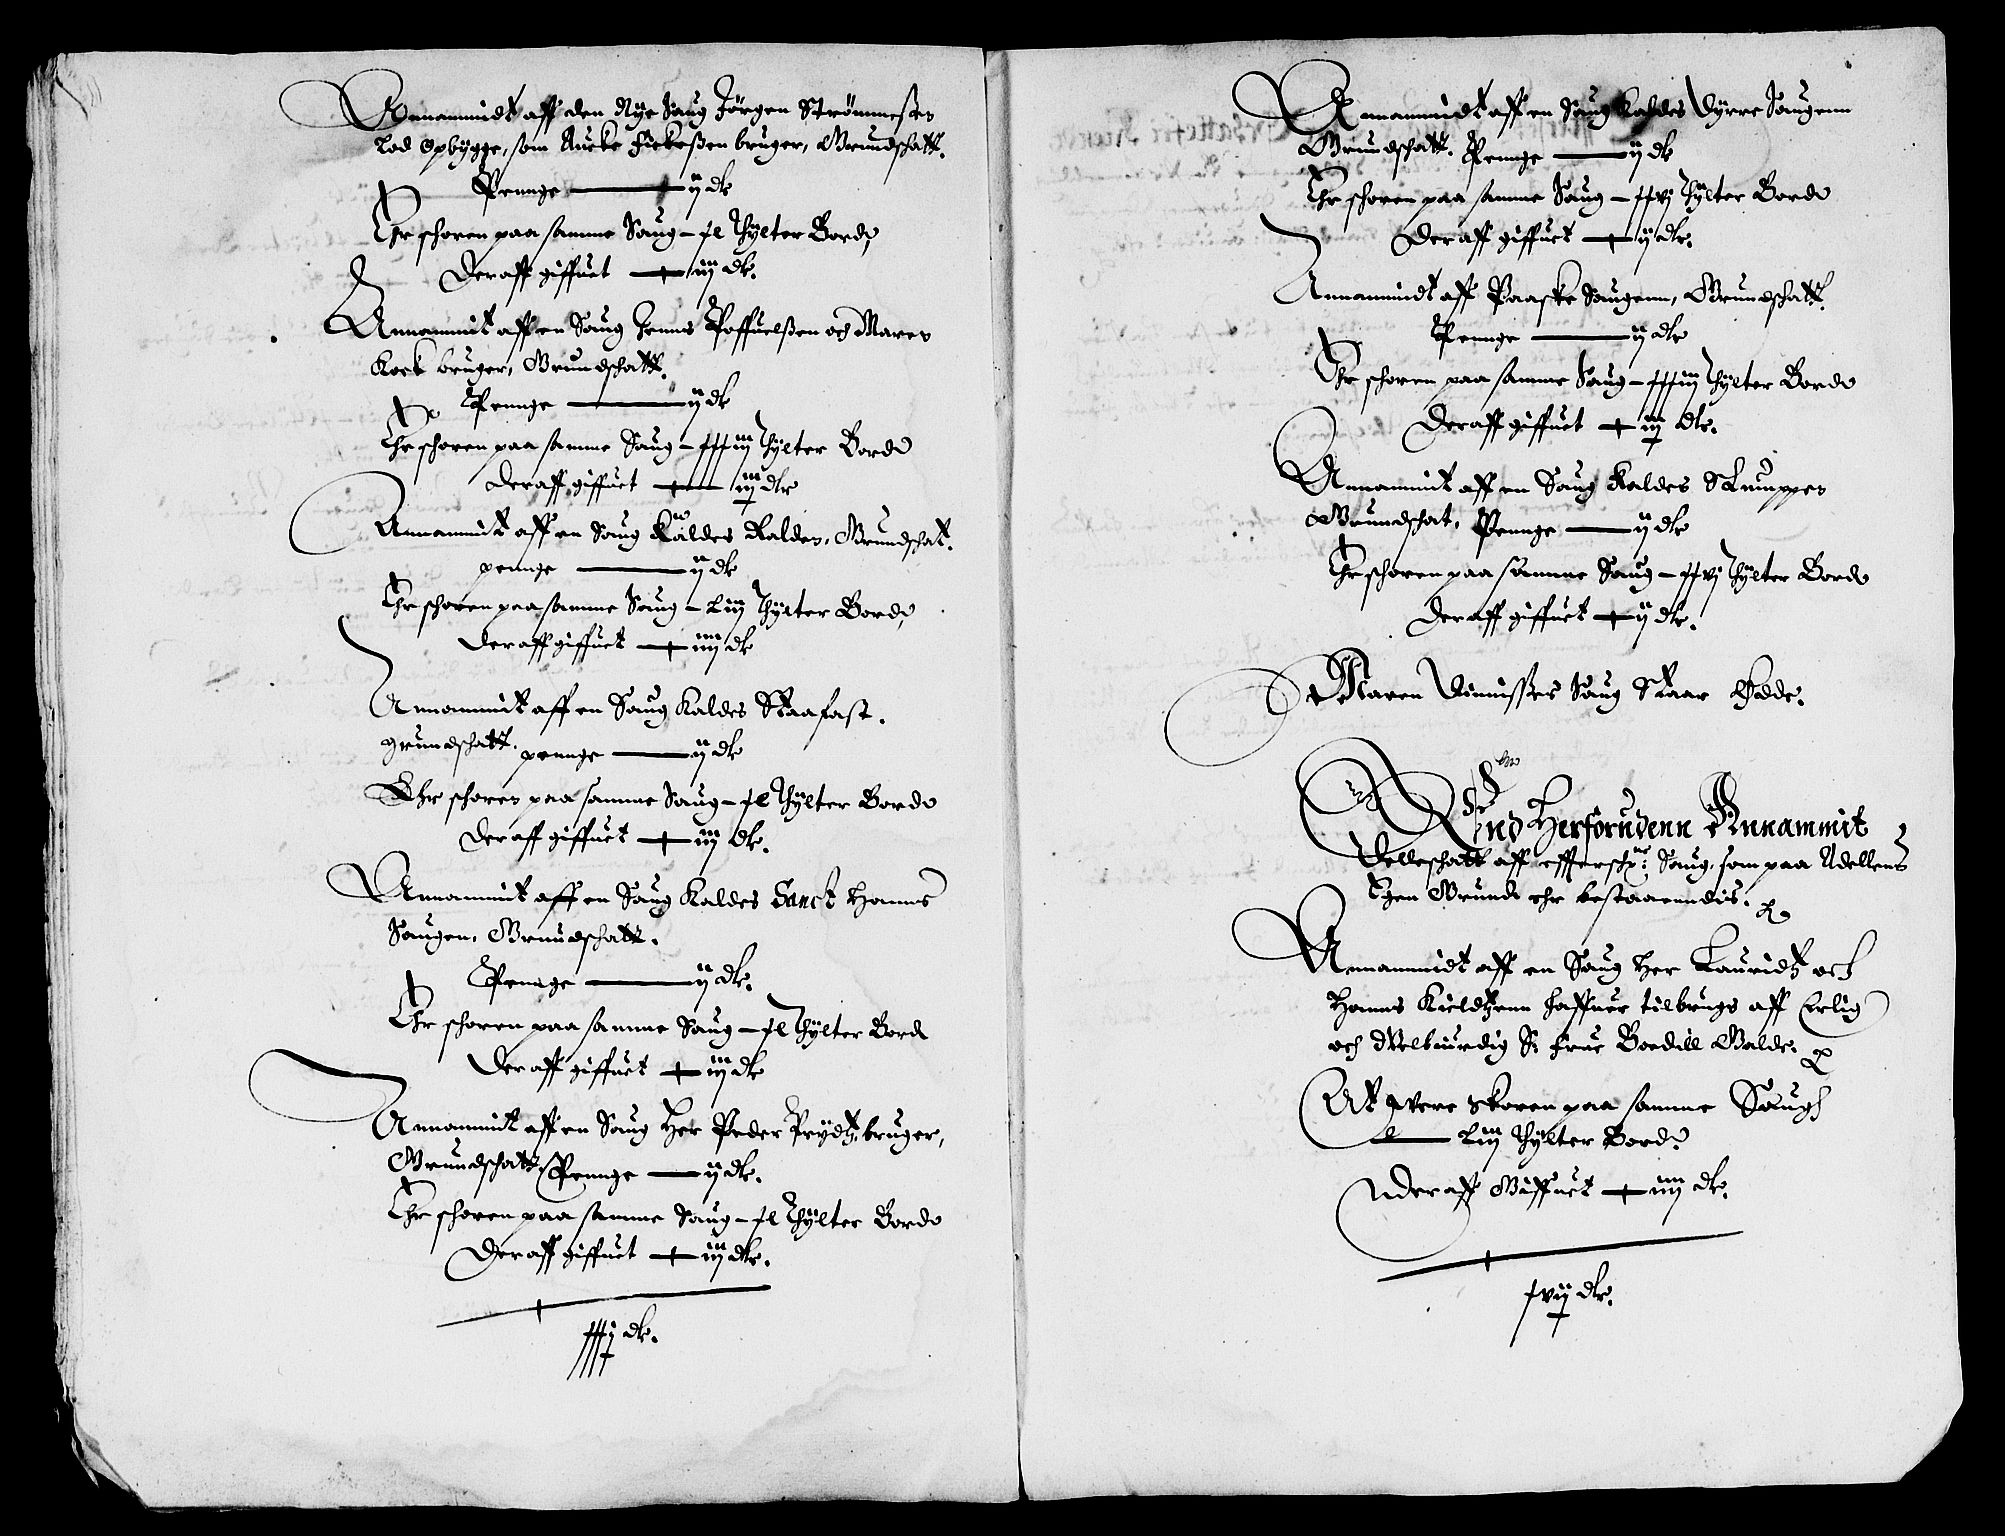 Annammidt aff den Nye Saug Jörgen Strömmeses
Lod Opbygge, som Aucke Fickeßen bruger, Grundschatt.
Pennge — ij dlr
Ehr schoren paa samme Saug — xl Thylter Bord,
Deraff giffuet — iij dlr.
Annammit aff en Saug Jenns Poffuelßen og Mares
Kock bruger, Grundschatt.
Pennge — ij dlr
Ehr schoren paa samme Saug — xxxiij Thylter Bord
Deraff giffuet — iij dlr
Annammit aff en Saug Kaldes Kalder, Grundschat.
pennge — ij dlr
Ehr schoren paa samme Saug — Liij Thylter Bord,
Deraff giffuet — iiij dlr
Annammit aff en Saug Kaldes Staafast.
grundschatt. pennge — ij dlr
Ehr schoren paa samme Saug — xl Thylter Bord
Deraff giffuet — iij dlr.
Annammit aff en Saug Kaldes Sanct Hanns
Saugen, Grundschatt.
Pennge — ij dlr.
Ehr schoren paa samme Saug — xl Thylter Bord
Deraff giffuet — iij dlr
Annammit aff en Saug Her Peder Prydtz bruger,
Grundschatt, Pennge — ij dlr.
Ehr schoren paa samme Saug — xl Thylter Bord
Deraff giffuet — iij dlr.
xxxj dlr.
Annammidt aff en Saug Kaldes Dyrre Saugenn
Grundschatt. Pennge — ij dlr
Ehr schoren paa samme Saug — xxvj Thylter Bord
Deraff giffuet — ij dlr.
Annammidt aff Paaske Saugenn, Grundschatt.
Pennge — ij dlr
Ehr schoren paa samme Saug — xxxiij Thylter Bord
Deraff giffuet — iij dlr.
Annammit aff en Saug Kaldes Skrupper
Grundschat, Pennge — ij dlr
Ehr schoren paa samme Saug — xxvj Thylter Bord
Deraff giffuet — ij dlr.
Maren Saug Staar Øde.
End Herforudenn Annammit
Delleschatt aff effterschr: Saug, som paa Adellens
Egen Grund ehr bestaaenndis.
Annammidt aff en Saug Her Lauridtz och
Hanns Kieldtzenn haffuer tilbrugs aff Erlig
och Welbiurdig S: Frue Bodill Galde.
At were skoren paa samme Saug
— Liij Thylter Bord
Deraff Giffuet — iiij dlr.
xvij dlr.